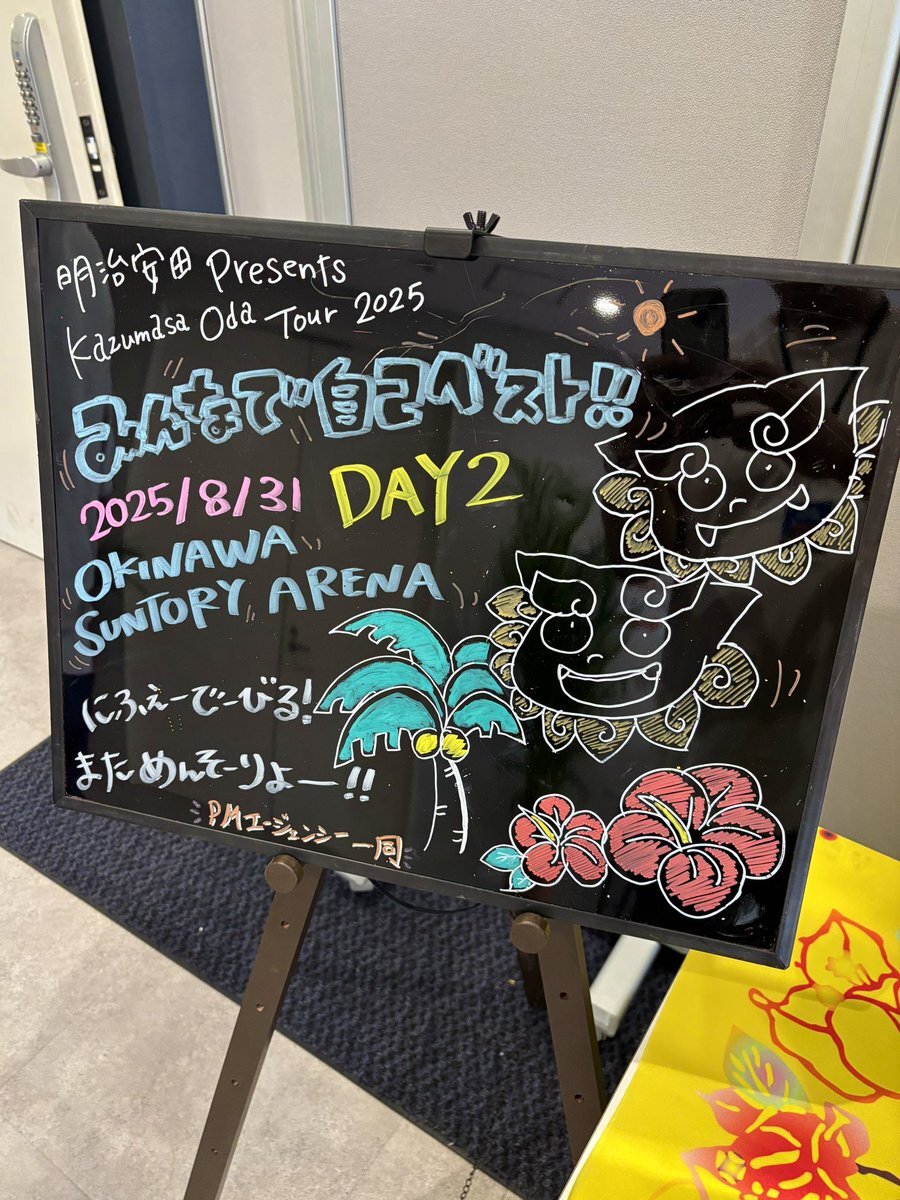 明治安田 Presents
Kazumasa Oda Tour 2025
みんなで自己ベスト!!
2025/8/31 DAY2
OKINAWA
SUNTORY ARENA
にふぇーでーびる!
まためんそーりょー!!
PMエージェンシー一同